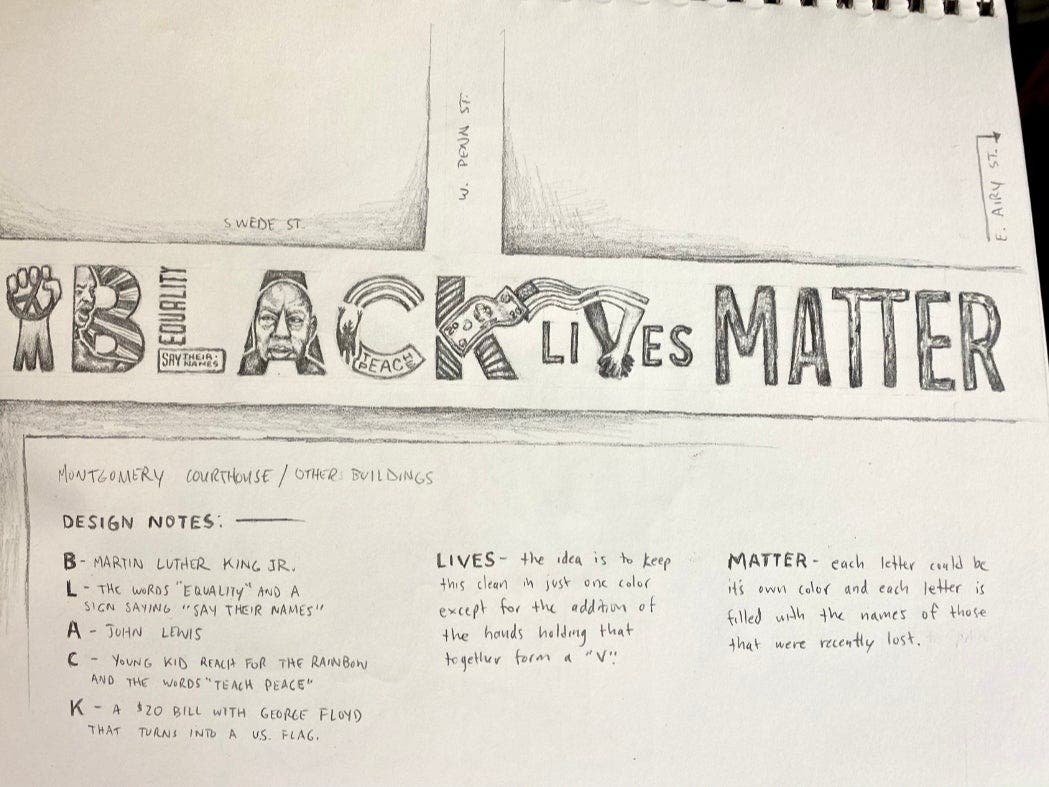 W. PENN ST.
E. AIRY ST.
SWEDE ST.
BLACK LIVES MATTER
EQUALITY
SAY THEIR NAMES
TEACH
PEACE
20 20
MONTGOMERY COURTHOUSE / OTHER BUILDINGS
DESIGN NOTES:
B - MARTIN LUTHER KING JR.
L - THE WORDS "EQUALITY" AND A
SIGN SAYING "SAY THEIR NAMES"
A - JOHN LEWIS
C - YOUNG KID REACH FOR THE RAINBOW
AND THE WORDS "TEACH PEACE"
K - A $20 BILL WITH GEORGE FLOYD
THAT TURNS INTO A U.S. FLAG.
LIVES - the idea is to keep
this clean in just one color
except for the addition of
the hands holding that
together form a "V".
MATTER - each letter could be
it's own color and each letter is
filled with the names of those
that were recently lost.